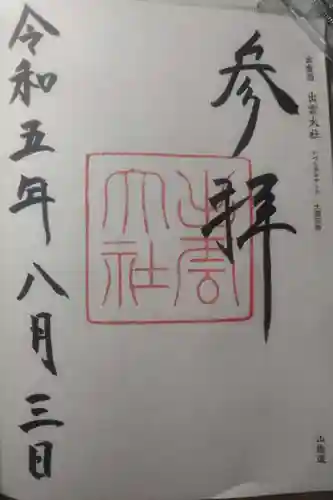 出雲大社
山陰道
参拝
出雲大社
令和五年八月三日